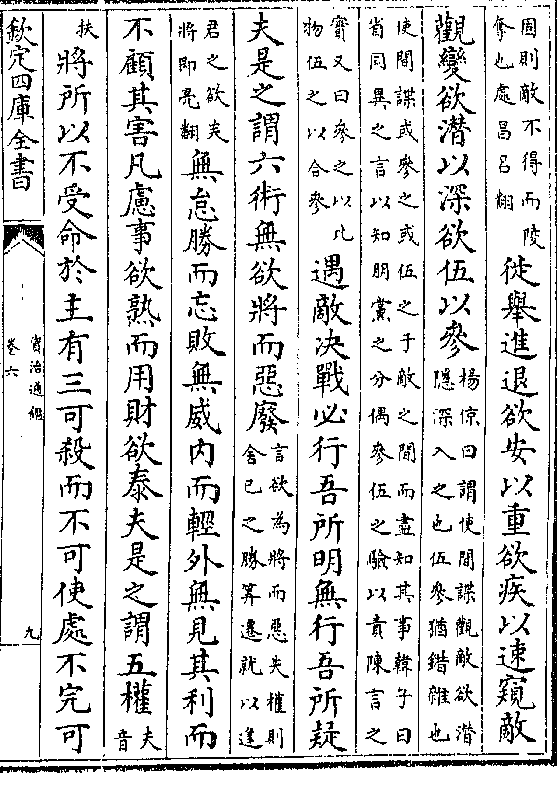 固則敵不得而陵
奪也處昌呂翻
徙舉進退欲安以重欲疾以速窺敵
觀變欲潛以深欲伍以參
楊倞曰謂使間諜觀敵欲潛
隱深入之也伍參猶錯雜也
使間諜或參之或伍之于敵之間而盡知其事韓子曰
省同異之言以知朋黨之分偶參伍之驗以責陳言之
實又曰參之以比
物伍之以合參
遇敵决戰必行吾所明無行吾所疑
夫是之謂六術無欲將而惡廢
言欲為將而惡失權則
舍己之勝算遷就以逢
君之欲夫
將即亮翻
無怠勝而忘敗無威内而輕外無見其利而
不顧其害凡慮事欲熟而用財欲泰夫是之謂五權
夫
音
扶
將所以不受命於主有三可殺而不可使處不完可
欽定四庫全書
資治通鑑
卷六
九